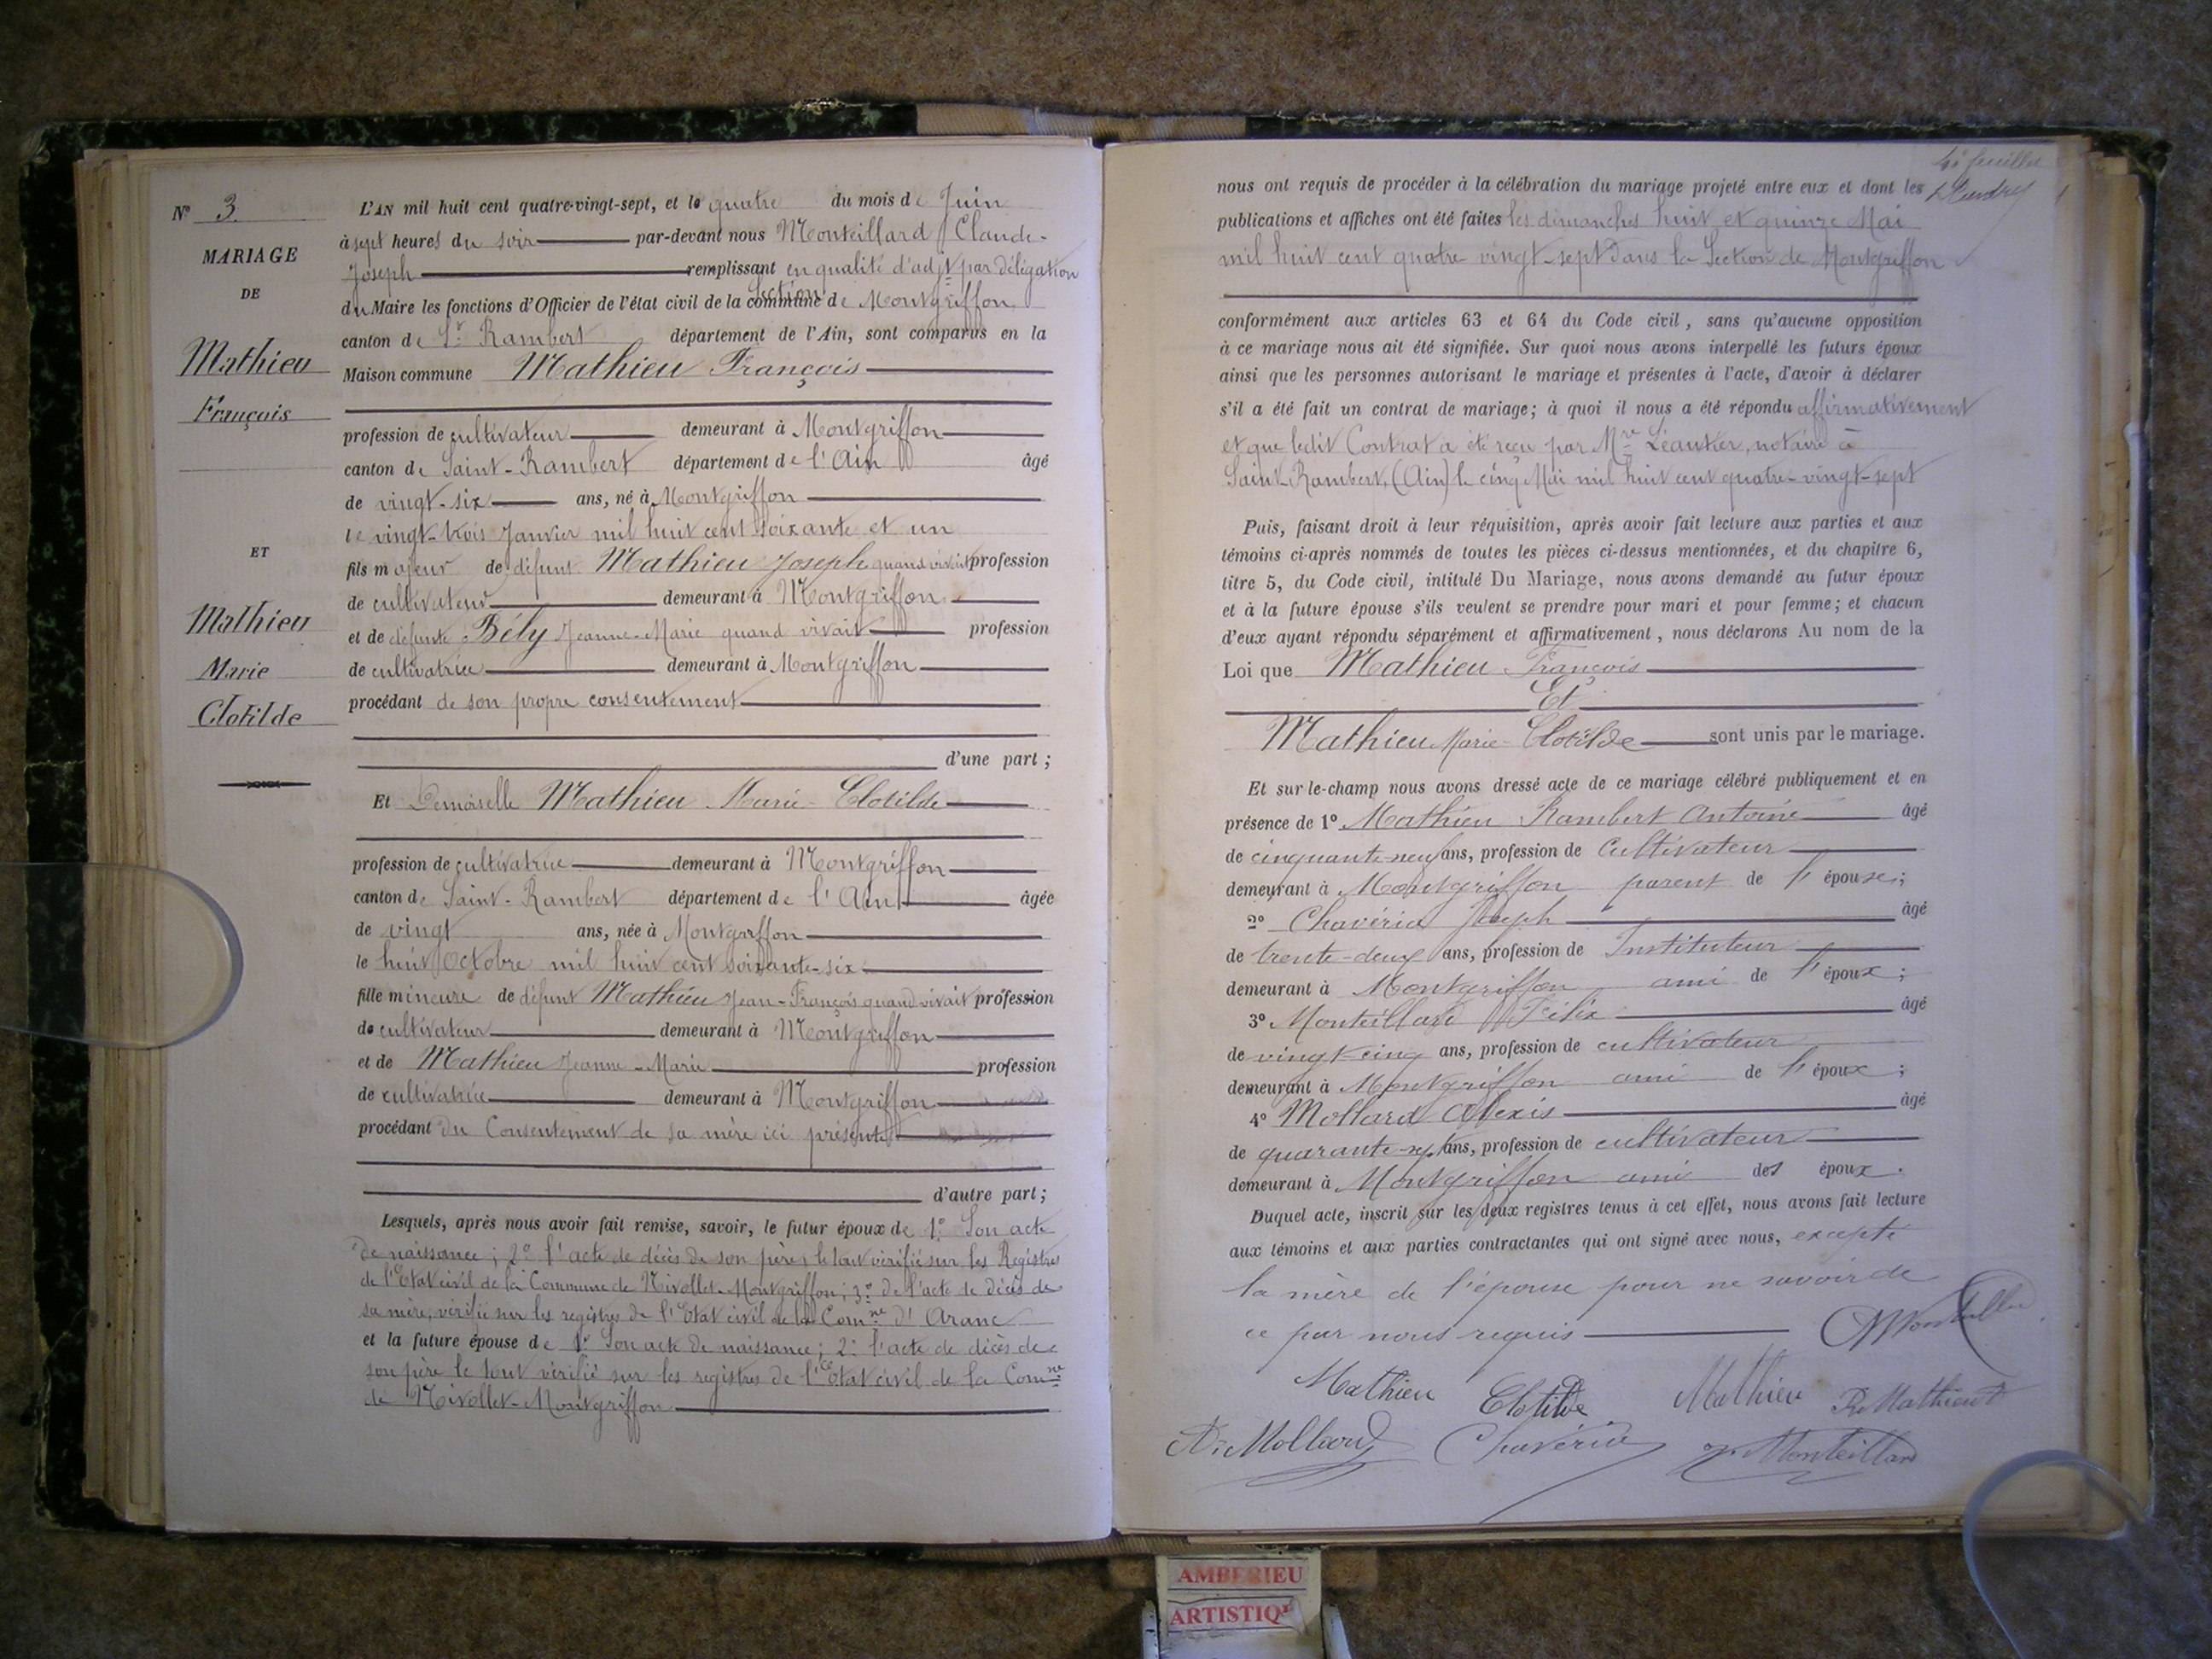 Nº 3.
MARIAGE
DE
Mathieu
François
ET
Mathieu
Marie
Clotilde
L'AN mil huit cent quatre-vingt-sept, et le quatre du mois de Juin
à sept heures du soir par-devant nous Monteillard Claude-
Joseph remplissant en qualité d'adjt par délégation
du Maire les fonctions d'Officier de l'état civil de la commune Section de Montgriffon
canton de St Rambert département de l'Ain, sont comparus en la
Maison commune Mathieu François
profession de cultivateur demeurant à Montgriffon
canton de Saint-Rambert département de l'Ain âgé
de vingt-six ans, né à Montgriffon
le vingt-trois Janvier mil huit cent soixante et un
fils majeur de défunt Mathieu Joseph quand vivait profession
de cultivateur demeurant à Montgriffon
et de défunte Bély Jeanne-Marie quand vivait profession
de cultivatrice demeurant à Montgriffon
procédant de son propre consentement
d'une part ;
Et Demoiselle Mathieu Marie-Clotilde
profession de cultivatrice demeurant à Montgriffon
canton de Saint-Rambert département de l'Ain âgée
de vingt ans, née à Montgriffon
le huit Octobre mil huit cent soixante-six
fille mineure de défunt Mathieu Jean-François quand vivait profession
de cultivateur demeurant à Montgriffon
et de Mathieu Jeanne-Marie profession
de cultivatrice demeurant à Montgriffon
procédant du Consentement de sa mère ici présente
d'autre part ;
Lesquels, après nous avoir fait remise, savoir, le futur époux de 1º Son acte
de naissance ; 2º l'acte de décès de son père, le tout vérifié sur les Registres
de l'Etat civil de la Commune de Nivollet-Montgriffon ; 3º de l'acte de décès de
sa mère, vérifié sur les registres de l'Etat civil de la Comne d'Aranc
et la future épouse de 1º Son acte de naissance ; 2º l'acte de décès de
son père le tout vérifié sur les registres de l'Etat civil de la Comne
de Nivollet-Montgriffon
nous ont requis de procéder à la célébration du mariage projeté entre eux et dont les
publications et affiches ont été faites les dimanches huit et quinze Mai
mil huit cent quatre-vingt-sept dans la Section de Montgriffon
conformément aux articles 63 et 64 du Code civil, sans qu'aucune opposition
à ce mariage nous ait été signifiée. Sur quoi nous avons interpellé les futurs époux
ainsi que les personnes autorisant le mariage et présentes à l'acte, d'avoir à déclarer
s'il a été fait un contrat de mariage; à quoi il nous a été répondu affirmativement
et que ledit Contrat a été reçu par Mre Léautier, notaire à
Saint-Rambert, (Ain) le cinq Mai mil huit cent quatre-vingt-sept
Puis, faisant droit à leur réquisition, après avoir fait lecture aux parties et aux
témoins ci-après nommés de toutes les pièces ci-dessus mentionnées, et du chapitre 6,
titre 5, du Code civil, intitulé Du Mariage, nous avons demandé au futur époux
et à la future épouse s'ils veulent se prendre pour mari et pour femme; et chacun
d'eux ayant répondu séparément et affirmativement, nous déclarons Au nom de la
Loi que Mathieu François
Et
Mathieu Marie-Clotilde sont unis par le mariage.
Et sur-le-champ nous avons dressé acte de ce mariage célébré publiquement et en
présence de 1º Mathieu Rambert Antoine âgé
de cinquante-neuf ans, profession de Cultivateur
demeurant à Montgriffon parent de l'épouse ;
2º Chavériat Joseph âgé
de trente-deux ans, profession de Instituteur
demeurant à Montgriffon ami de l'époux ;
3º Monteillard Félix âgé
de vingt-cinq ans, profession de cultivateur
demeurant à Montgriffon ami de l'époux ;
4º Mollard Alexis âgé
de quarante-sept ans, profession de cultivateur
demeurant à Montgriffon ami des époux.
Duquel acte, inscrit sur les deux registres tenus à cet effet, nous avons fait lecture
aux témoins et aux parties contractantes qui ont signé avec nous, excepté
la mère de l'épouse pour ne savoir de
ce par nous requis
Mathieu Clotilde Mathieu R. Mathieu
Mollard Chavériat Monteillard
AMBERIEU
ARTISTIQ